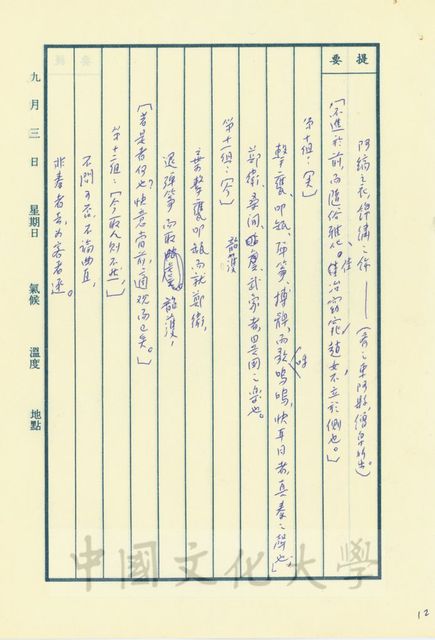 提要
阿縞之衣,錦繡之飾——(齊之東阿縣,繒帛所出。)
「不進於前,而隨俗雅化,佳冶窈窕,趙女不立於側也。」
佳
第十組:(夫)
擊甕叩缻、彈箏、搏髀,而歌嗚嗚,快耳目者,真秦之聲也;
呼
鄭衛、桑間、韶虞、武象者,異國之樂也。
第十一組:(今)
韶護
棄擊甕叩缻而就鄭衛,
退彈箏而取韶虞,韶護,
「若是者何也?快意當前,適觀而已矣。」
第十二組:「今取人則不然,」
不問可否,不論曲直,
非秦者去,為客者逐。
九月三日 星期日 氣候 溫度 地點
12
中國文化大學